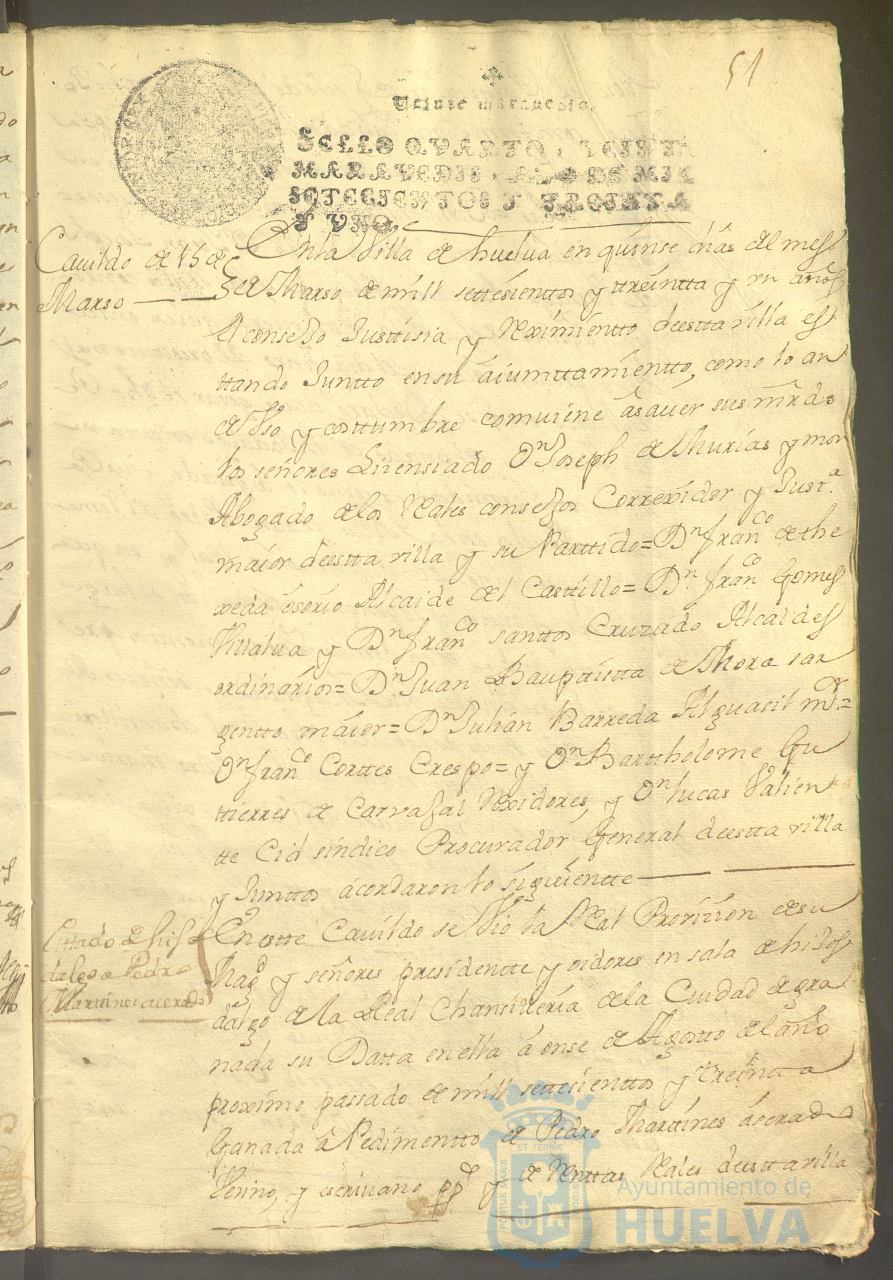 51
Veinte maravedis.
SELLO QVARTO, VEINTE
MARAVEDIS, AÑO DE MIL
SETECIENTOS Y TREINTA
Y VNO.
Cavildo de 15 de
Marso
En la Villa de huelva en quinse dias del mes
de Marso de mill settesienttos y ttreintta y un años
el consejo Justtisia y Reximientto de estta villa es
ttando Juntto en su aiunttamientto, como lo an
de Vso y costtumbre comviene âsaver sus mrds
los señores Lisensiado Dn Joseph de Murias y mon
Abogado de los Reales consejos Correxidor y Justa
maior de estta villa y su Parttido= Dn Franco de the
xeda ôsorio Alcaide del Casttillo= Dn Franco Gomes
Villalua y Dn Franco santtos Cruzado Alcaldes
ordinarios= Dn Juan Bauptistta de Mora sar
gentto maior= Dn Julian Barreda Alguasil mor=
Dn Franco Corttes Crespo= y Dn Barttholome Gu
ttierres de Carvajal Rexidores, y Dn Lucas Valien
tte Cid síndico Procurador General de estta villa
y Junttos acordaron lo siguientte
Cittado de hijo
dalgo a Pedro
Martines
En estte Cavildo se Vio la Real Provizion de su
Magd y señores presidentte y oidores en sala de hijos
dalgo de la Real Chansilleria de la Ciudad de gra
nada su Datta en ella â onse de Agostto del año
proximo passado de mill settesienttos y treintta
Ganada â Pedimentto de Pedro Martines
Vesino, y escrivano ppco y de Renttas Reales de estta villa
Ayuntamiento de
HUELVA